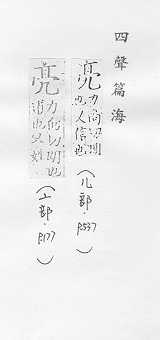 四聲篇海
亮 力尚切明也人信也
(儿部·P537)
亮 力向切明也
(亠部·P177)